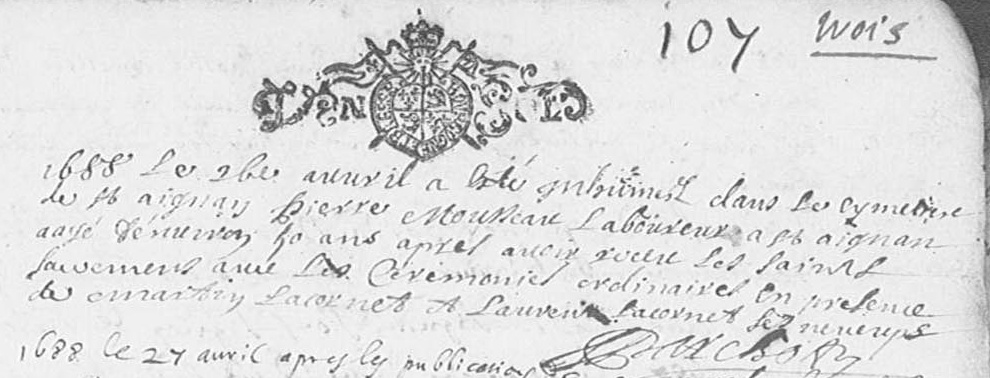 107 Wois
1688 Le 26e auvril a esté Inhumé dans Le cymetire
de st aignan Pierre Mousseau Laboureur a st aignan
aagé d'environ 50 ans apres avoir receu Les saints
sacrements avec Les Ceremonies ordinaires En presence
de martin Lacornet et Laurent Lacornet ses neveups
1688 Le 27 avril apres les publications